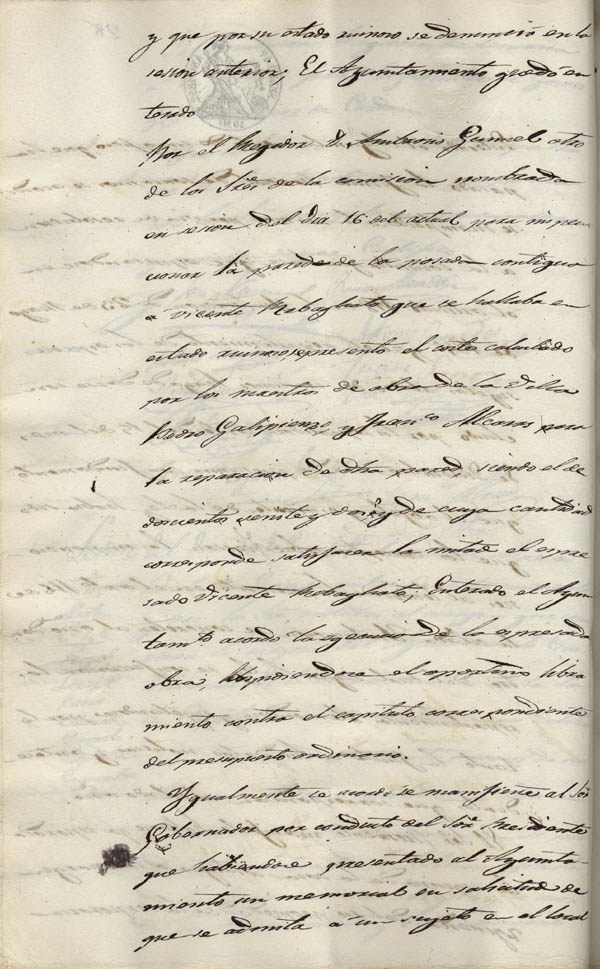 y que por su estado ruinoso se denunció en la
sesion anterior; El Ayuntamiento quedó en-
terado
Por el Regidor D. Ambrosio Gumiel otro
de los Sres. de la comision nombrada
en sesion del dia 16 del actual para inspec
cionar la pared de la posada contigua
a Vicente Rebagliato que se hallaba en
estado ruinoso, presentó el coste calculado
por los maestros de obra de la Villa
Pedro Galipienso, y Franco. Alcaraz para
la reparacion de dha pared, siendo el de
doscientos veinte y dos y de cuya cantidad
corresponde satisfacer la mitad el espre
sado Vicente Rebagliato; Enterado el Ayun
tamto. acordó la ejecucion de la espresada
obra, librandose el oportuno libra
miento contra el capitulo correspondiente
del presupuesto ordinario.
Ygualmente se acordó se manifieste al Sor.
Gobernador por conducto del Sor. Presidente
que habiendose presentado al Ayunta-
miento un memorial en solicitud de
que se admita á un sujeto en el local